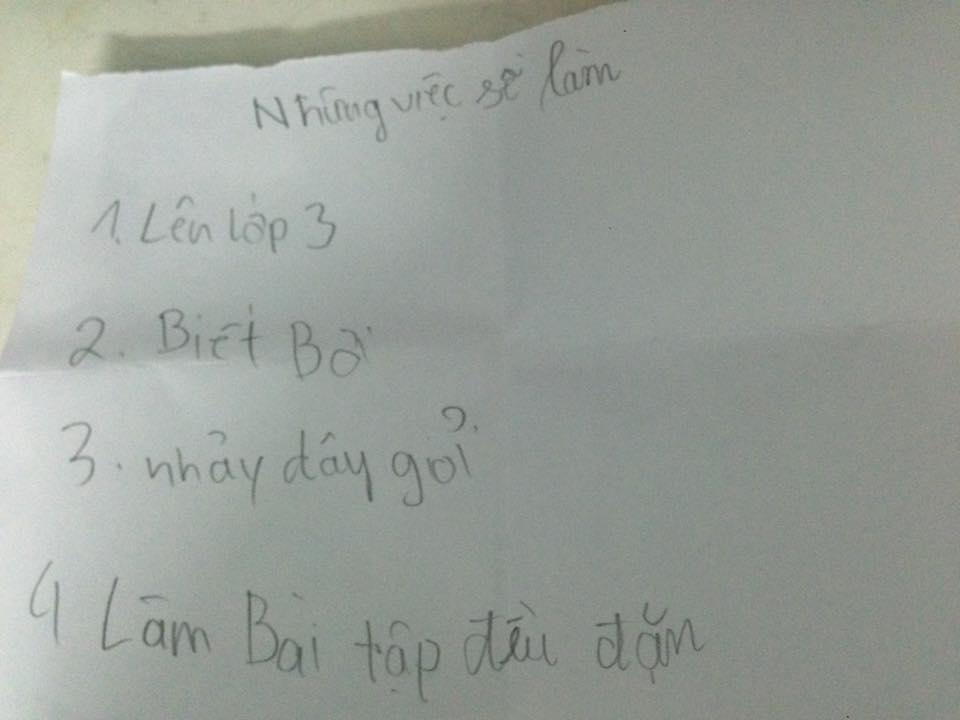 Những việc sẽ làm
1. Lên lớp 3
2. Biết Bơi
3. nhảy dây giỏi
4 Làm Bài tập đều đặn